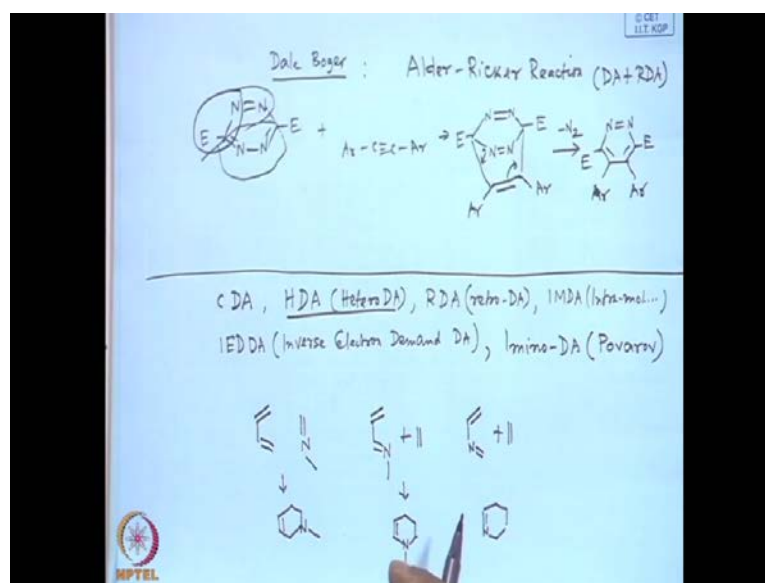 © CET
I.I.T. KGP
Dale Boger : Alder-Ricker Reaction (DA+RDA)
N=N
E E + Ar-C≡C-Ar → E N=N E -N2 → N=N
N-N N=N E E
Ar Ar Ar Ar
CDA, HDA (HeteroDA), RDA (retro-DA), IMDA (Intra-mol...)
IEDDA (Inverse Electron Demand DA), Imino-DA (Povarov)
N + N + N
↓ ↓
N N N
NPTEL